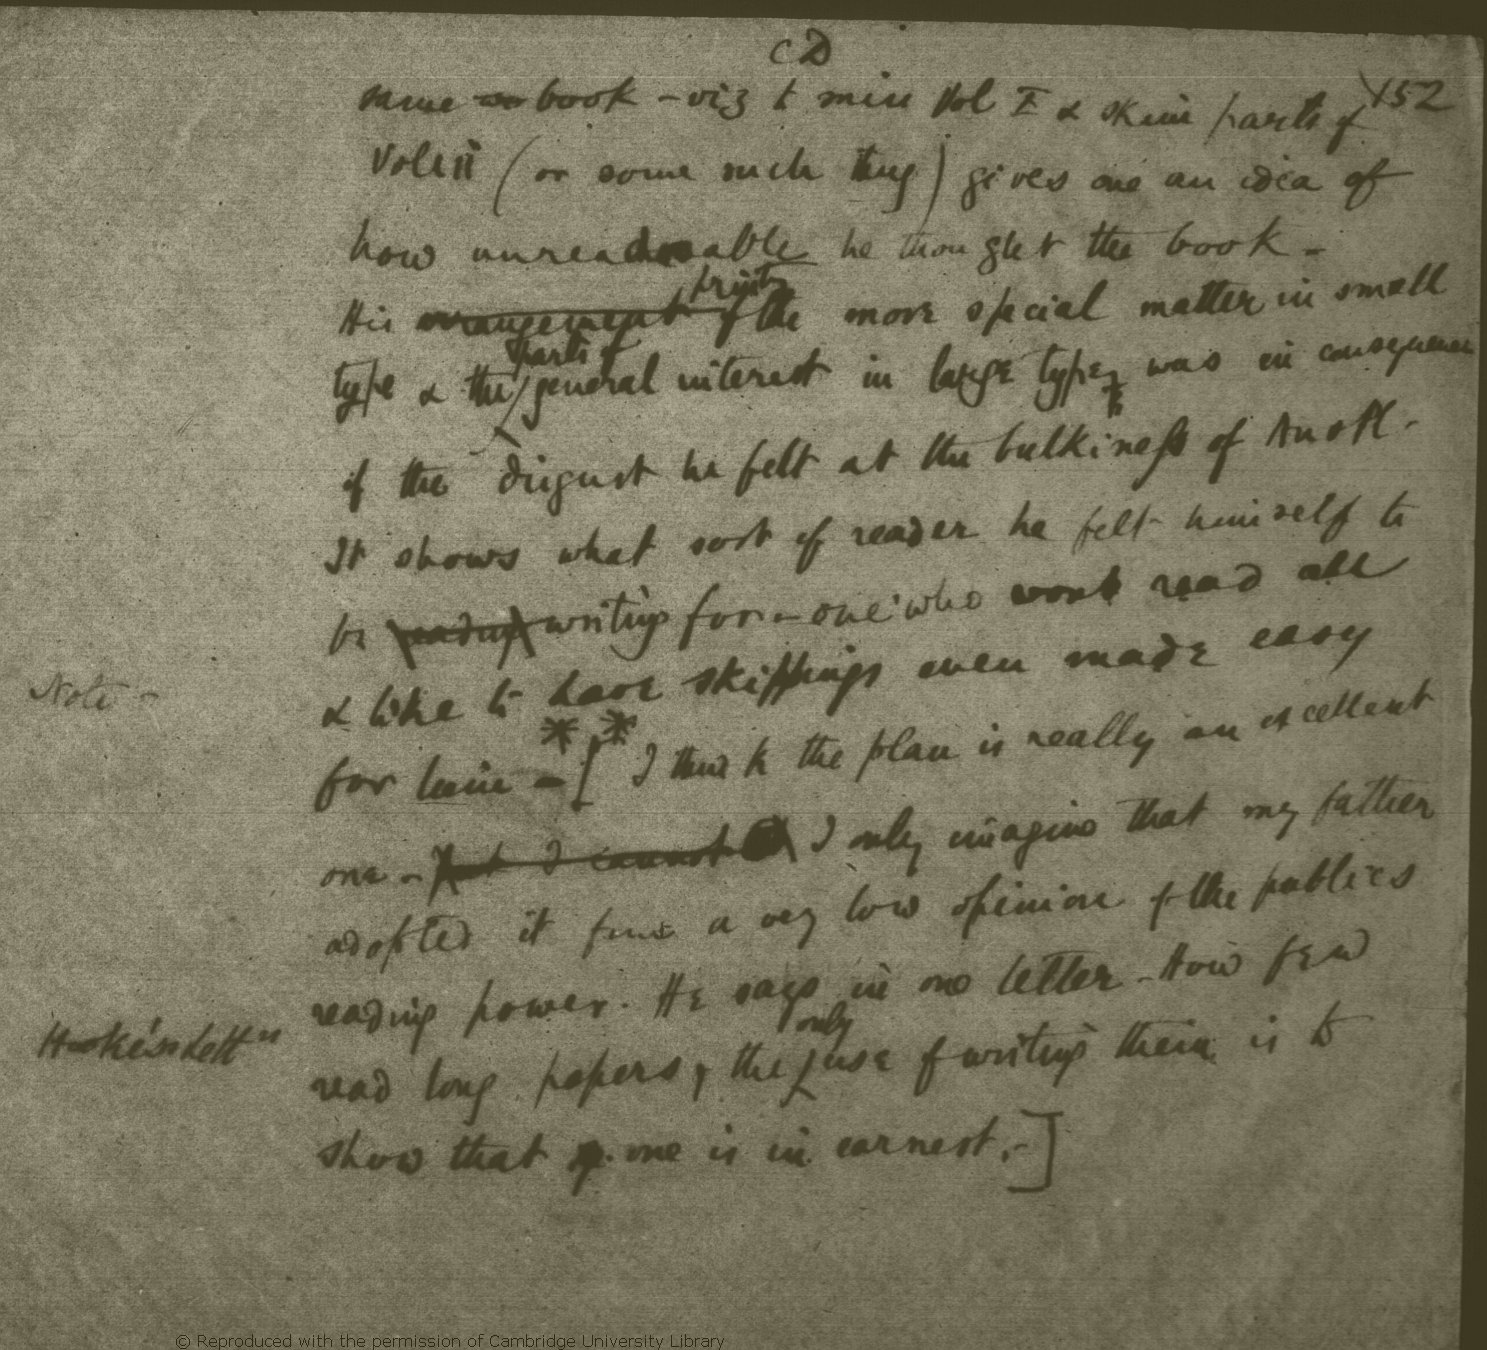 CD
152
same so book – viz to miss Vol I & skim parts of
Vol II (or some such thing) gives one an idea of
how unreadable he thought the book –
printing
His arrangement of the more special matter in small
parts of
type & the general interest in large type, was in consequence
of the disgust he felt at the bulkiness of An & Pl –
It shows what sort of reader he felt himself to
be reading writing for – one who wont read all
Note –
& like to have skippings even made easy
for him – [ I think the plan is really an excellent
one – but I cannot I only imagine that my father
adopted it from a very low opinion of the publics
reading power. He says in one letter – How few
only
Hooker's Letters
read long papers, the use of writing them is to
show that one is in earnest. –]
© Reproduced with the permission of Cambridge University Library